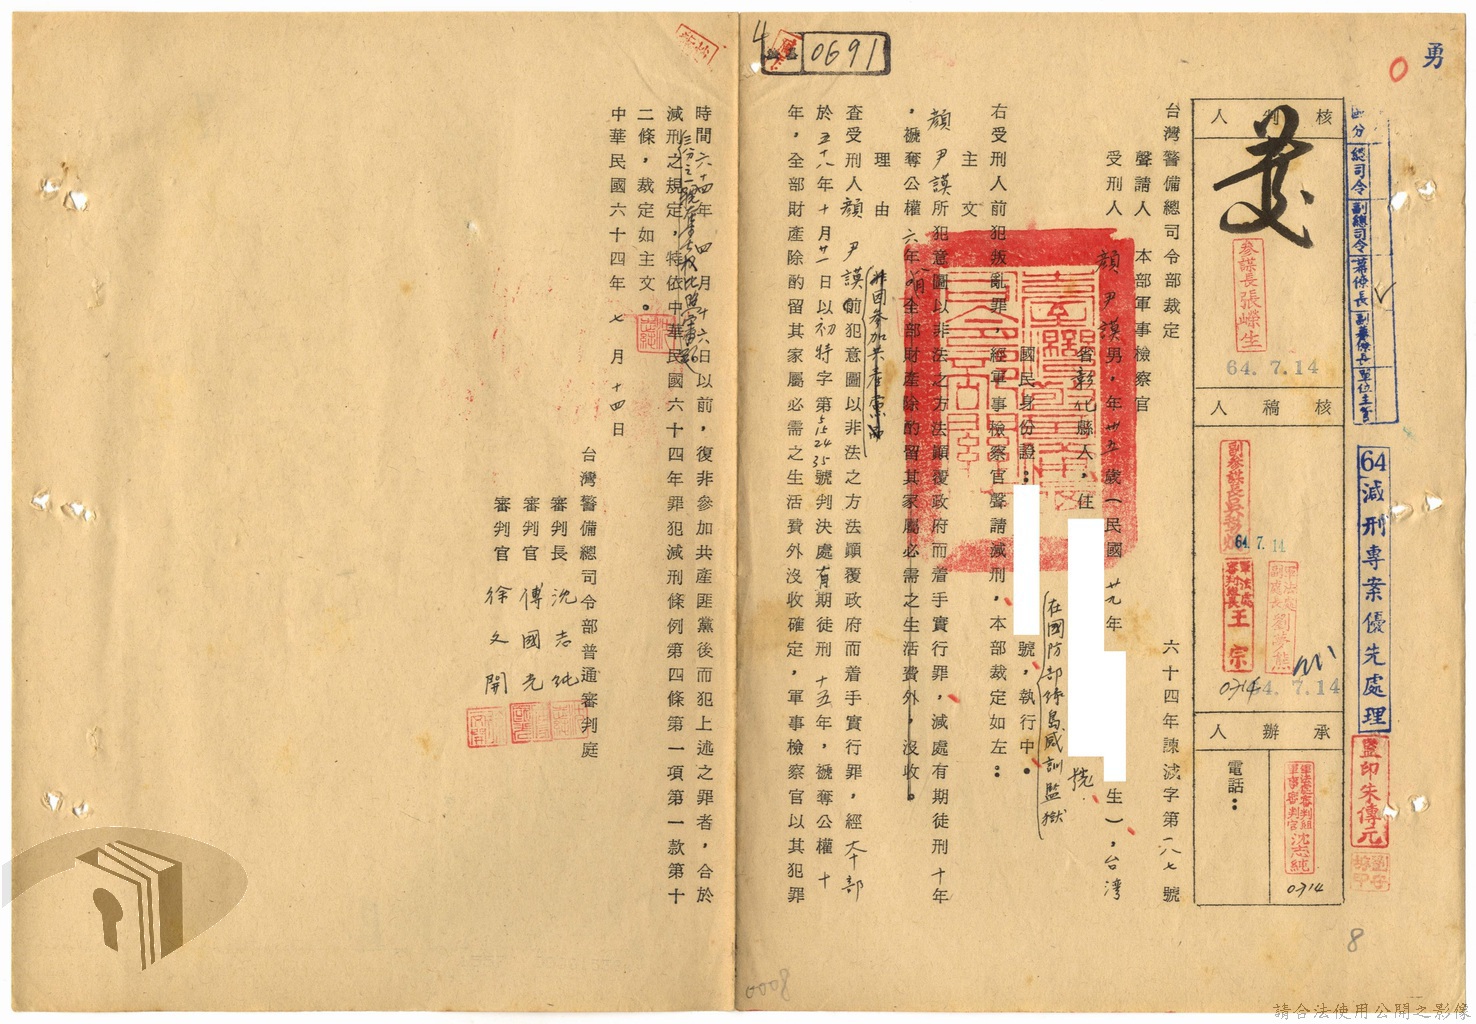 勇
0
4
0691
64減刑專案優先處理
監印朱傳元
總司令
副總司令
幕僚長
副幕僚長
單位主管
核判人
參謀長張嶸生
64.7.14
核稿人
64.7.14
軍法處審判組長王宗
64.7.14
0714
承辦人
電話：
軍法處審判組軍事審判官沈志純
0714
台灣警備總司令部裁定
六十四年諫減字第一八七號
聲請人　本部軍事檢察官
受刑人　顏尹謨男，年卅五歲（民國廿九年
生），台灣
省彰化縣人，住
號
國民身份證：
號，執行中。
在國防部綠島感訓監獄
右受刑人前犯叛亂罪，經軍事檢察官聲請減刑，本部裁定如左：
主文
顏尹謨所犯意圖以非法之方法顛覆政府而着手實行罪，減處有期徒刑十年
，褫奪公權六年八月全部財產除酌留其家屬必需之生活費外，沒收。
理由
非因參加共產黨而
查受刑人顏尹謨前犯意圖以非法之方法顛覆政府而着手實行罪，經本部
於五十八年十月廿一日以初特字第
號判決處有期徒刑十五年，褫奪公權十
年，全部財產除酌留其家屬必需之生活費外沒收確定，軍事檢察官以其犯罪
時間六十四年四月十六日以前，復非參加共產匪黨後而犯上述之罪者，合於
減刑之規定，特依中華民國六十四年罪犯減刑條例第四條第一項第一款第十
二條，裁定如主文。
中華民國六十四年七月十四日
台灣警備總司令部普通審判庭
審判長　沈志純
審判官　傅國光
審判官　徐文開
8
0008
請合法使用公開之影像